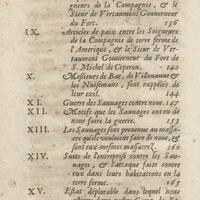 gneurs de la Compagnie, & le
Sieur de Vertaumont Gouverneur
du Fort. 136
IX. Articles de paix entre les Seigneurs
de la Compagnie de terre ferme de
l'Amerique, & le Sieur de Ver-
taumont Gouverneur du Fort de
S. Michel de Ceperou. 140
X. Messieurs de Bar, de Villenanue &
les Nuisemans, sont rappellés de
leur exil. 144
XI. Guerre des Sauvages contre nous. 147
XII. Motifs que les Sauvages ont eu de
nous faire la guerre. 153
XIII. Les Sauvages sont prevenus au massa-
cre qu'ils vouloient faire de nous, &
sont eux-mesmes massacrez. 160
XIV. Suite de l'entreprise contre les Sau-
vages, & l'attaque faite contre
eux dans leurs habitations en la
terre ferme. 165
XV. Estat déplorable dans lequel nous